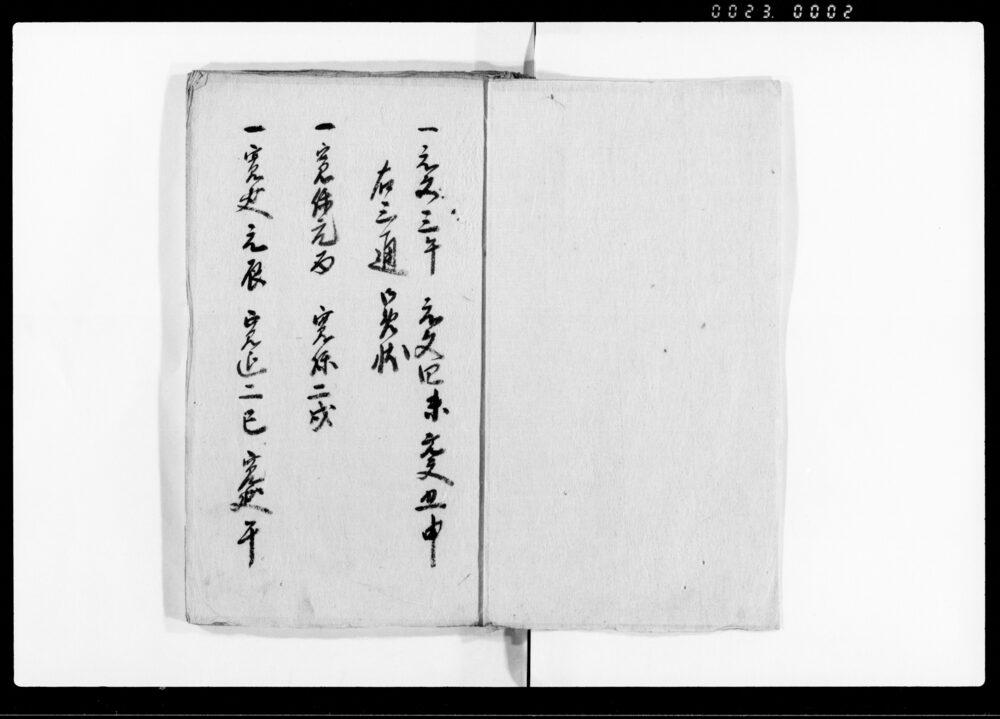 0023. 0002
一 元文三午 元文四未 元文五申
右三通
一 寛保元酉 寛保二戌
一 寛延元辰 寛延二巳 寛延午